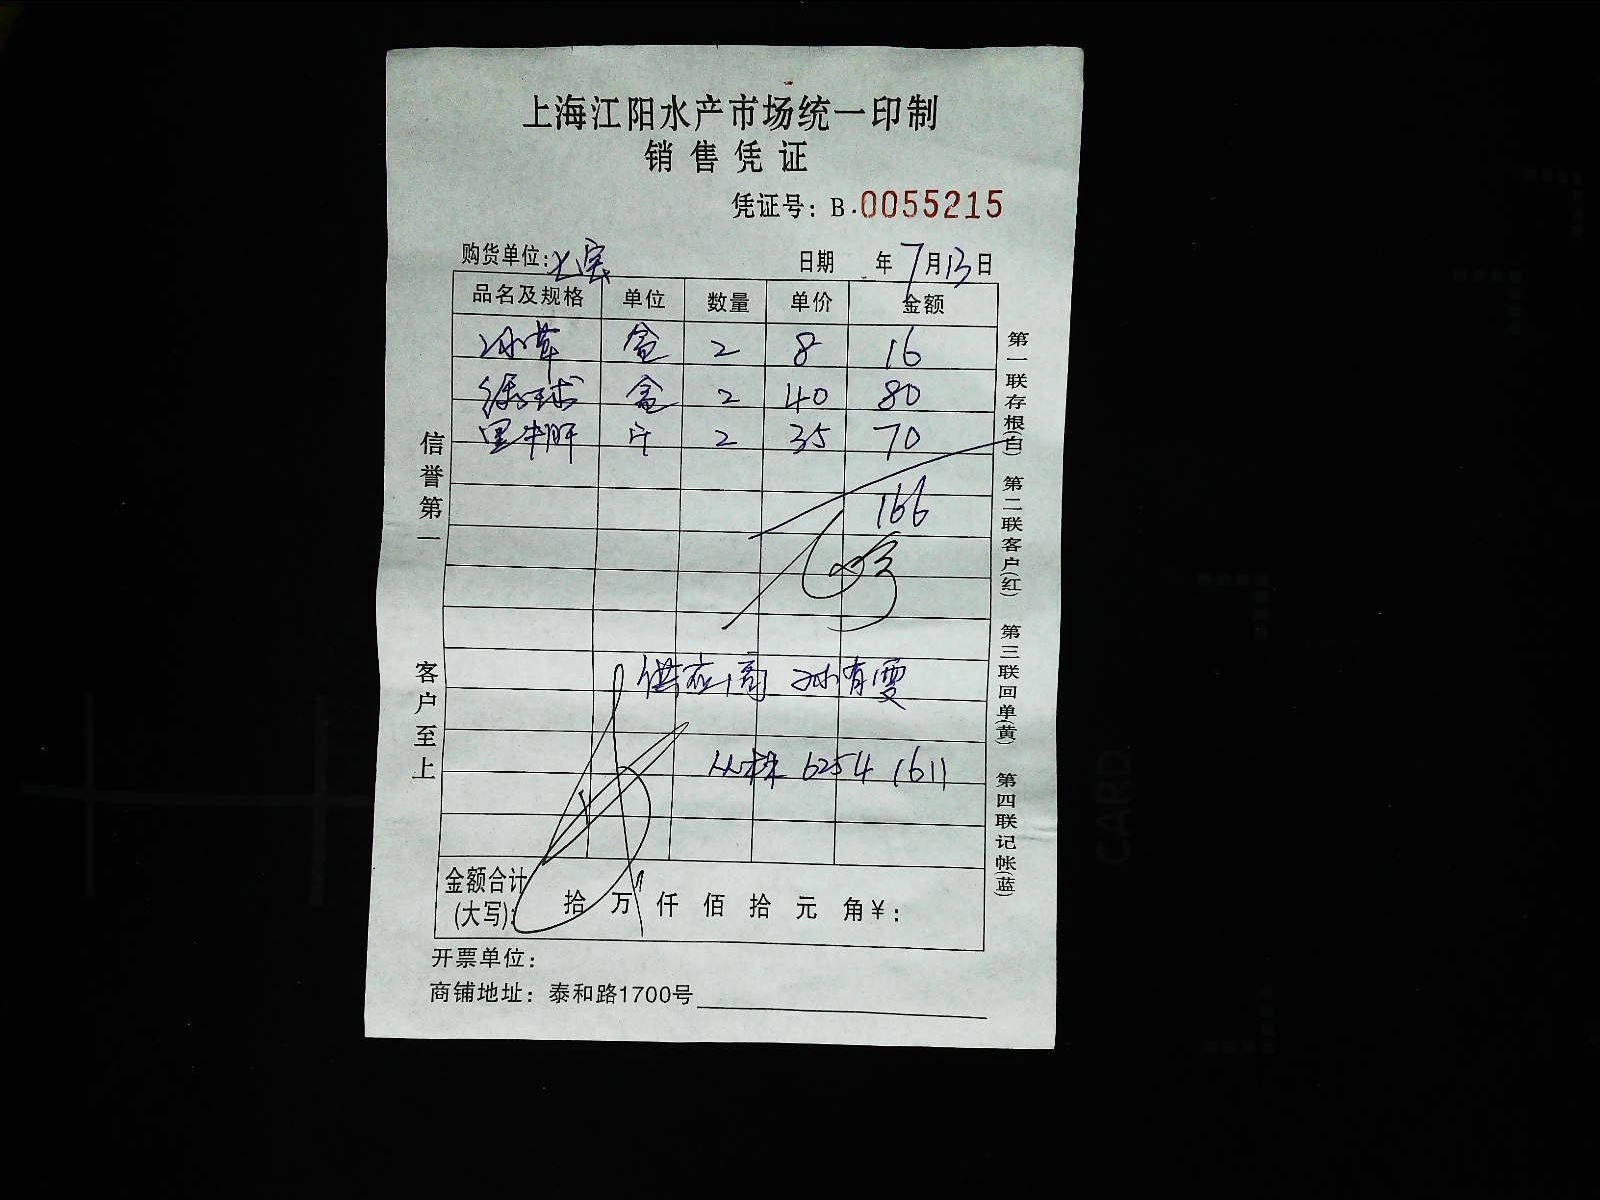 上海江阳水产市场统一印制
销售凭证
凭证号：B.0055215
购货单位： 日期 年7月13日
品名及规格 单位 数量 单价 金额
冰草 盒 2 8 16
绿球 盒 2 40 80
黑牛肝 斤 2 35 70
166
供应商 孙有雯
6254 1611
金额合计(大写)： 拾 万 仟 佰 拾 元 角￥：
开票单位：
商铺地址：泰和路1700号
信誉第一
客户至上
第一联存根(白) 第二联客户(红) 第三联回单(黄) 第四联记帐(蓝)
CARD